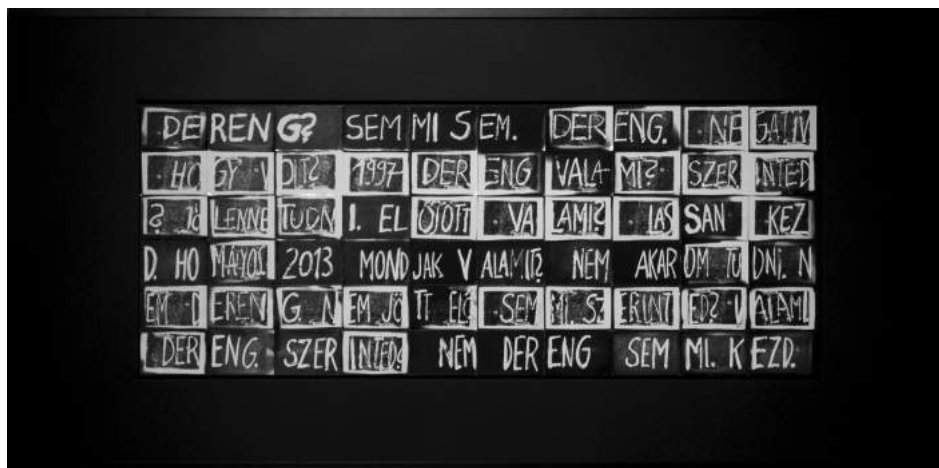 DERENG? SEMMI SEM. DERENG. NEGATIV
HOGY V DIT? 1997 DERENG VALAMI? SZERINTED
? JÓ LENNE TUDNI. ELŐJÖTT VALAMI? LASSAN KEZ
D. HO MÁLYOS 2013 MONDJAK VALAMIT? NEM AKAROM TUDNI. N
EM DERENG. NEM JÖTT ELŐ SEMMI. SZERINTED? VALAMI
DERENG. SZERINTED? NEM DERENG SEMMI. KEZD.